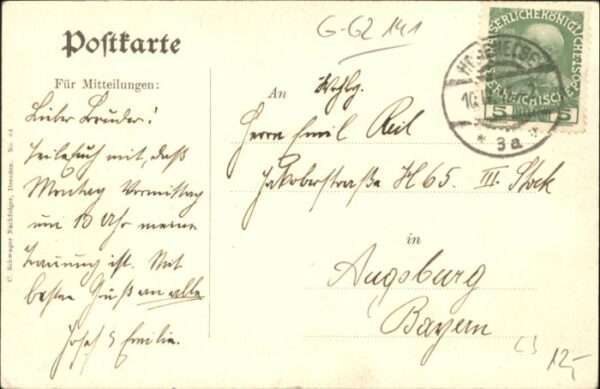 G-GZ 141
Postkarte
Für Mitteilungen:
Lieber Bruder!
Teile Euch mit, daß
Montag Vormittag
um 10 Uhr meine
Trauung ist. Mit
besten Gruß an alle
Josef & Emilie.
C. Schwager Nachfolger, Dresden. No. 64
An Wohlg.
Herrn Emil Reil
Jakoberstraße H 65. III. Stock
in
Augsburg
Bayern
HOHENELBE
10.
* 3a *
KAISERLICHKÖNIGLICHE
ÖSTERREICHISCHE POST
5 5
12,-